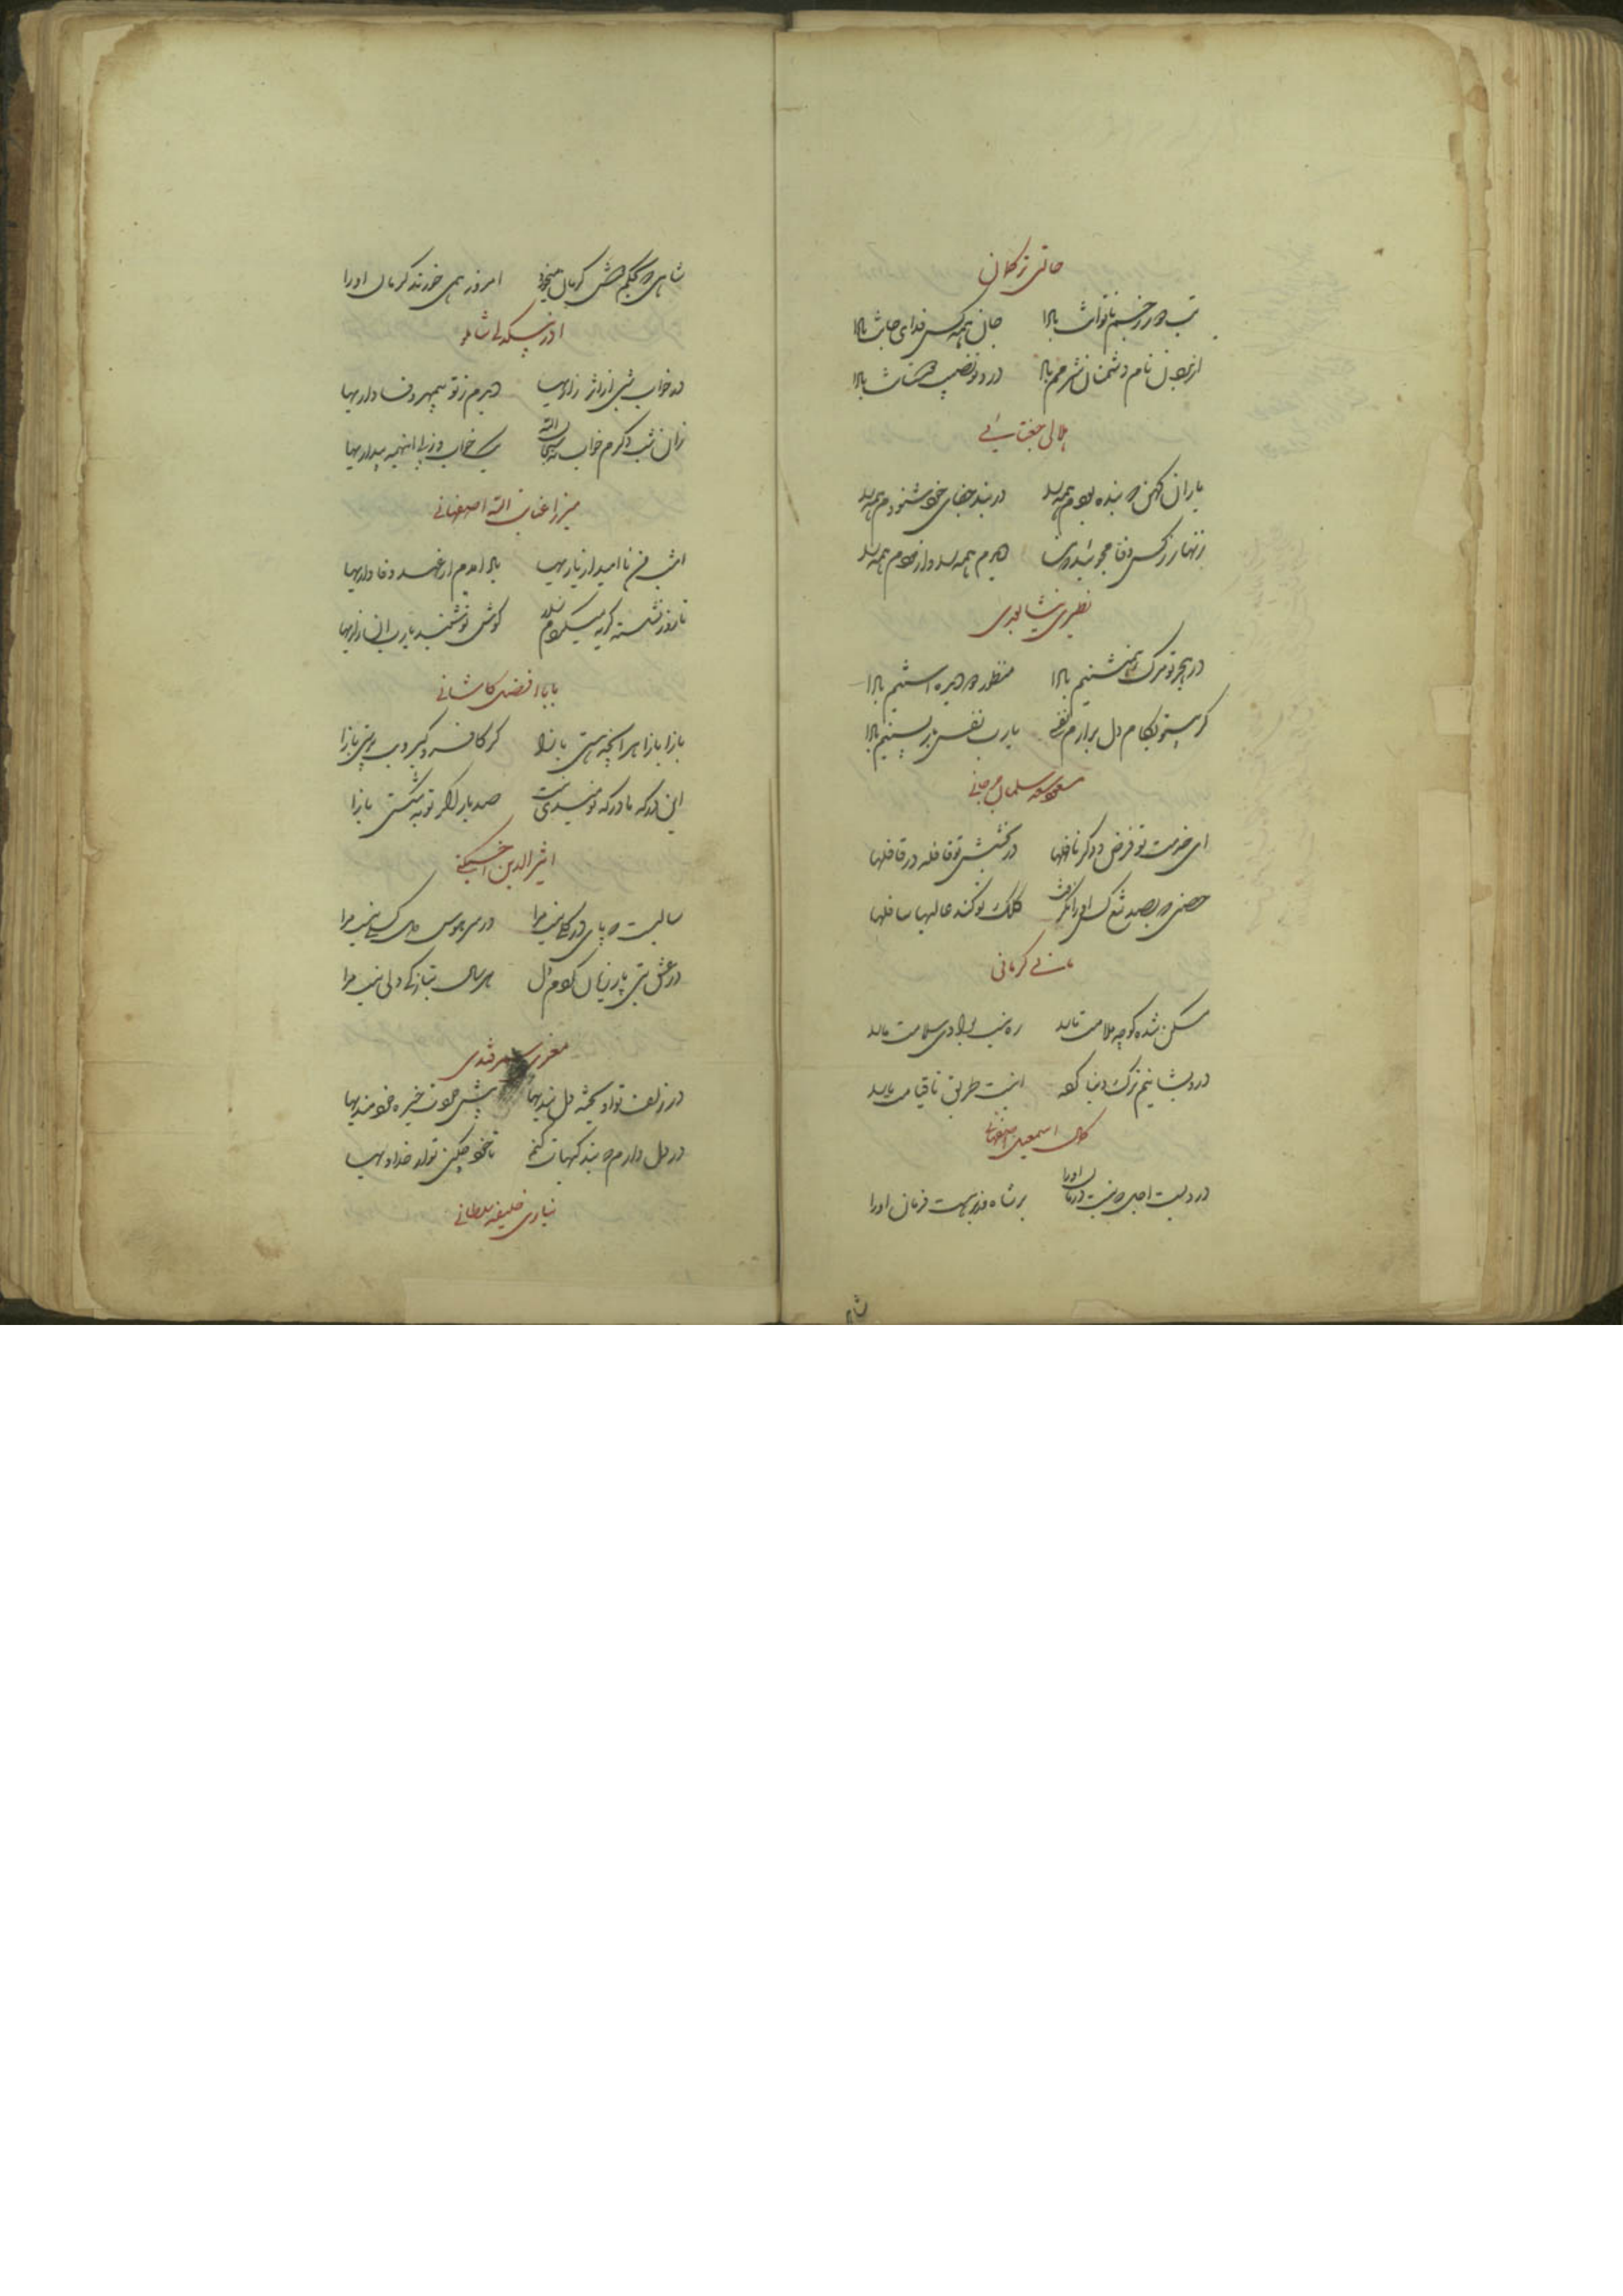 حالتی ترکمان
تب دور ز جسم ناتوانت بادا جان همه کس فدای جانت بادا
از بردن نام دشمنان شرمم باد درد تو نصیب دشمنانت بادا
هلالی جغتایی
یاران کهن که بنده بودم همه را در بند جفای خود شنودم همه را
زنهار ز کس وفا مجویید که من دیدم همه را و آزمودم همه را
نظیری نیشابوری
در هجر تو مرگ همنشینم بادا منظور دو دیده آستینم بادا
گر بیتو بکام دل برآرم نفسی یارب نفس بازپسینم بادا
مسعود سعد سلمان جرجانی
ای خدمت تو فرض و دگر نافلها در بخشش تو قافله در قافلها
حصنی که بصد تیغ کس آنرا نگرفت کلک تو کند عالیها سافلها
کرمانی
مسکن شده کوچه ملامت ما را ره نیست بوادی سلامت ما را
درویشانیم ترک دنیا کرده اینست طریق تا قیامت ما را
کمال اسمعیل اصفهانی
دردیست اجل که نیست درمان او را بر شاه و وزیر هست فرمان او را
شاه
شاهی که بحکم دوش کرمان میخورد امروز همی خورند کرمان او را
آذر بیگدلی شاملو
در خواب شبی از اثر زاریها دیدم ز تو بیمهر وفاداریها
زان شب دگرم خواب نه سبحان الله یک خواب و ز پی اینهمه بیداریها
میرزا عنایت الله اصفهانی
امشب من ناامید از یاریها یاد آمدم از عهد وفاداریها
تا روز نشسته گریه میکردم زار گوش تو شنید یارب این زاریها
بابا افضل کاشانی
بازآ بازآ هر آنچه هستی بازآ گر کافر و گبر و بت پرستی بازآ
این درگه ما درگه نومیدی نیست صد بار اگر توبه شکستی بازآ
اثیر الدین اخسیکتی
سالیست که پای در گلی نیست مرا در سر هوس مهر گسلی نیست مرا
در عشق بتی پار زیان کردم دل امسال بتازگی دلی نیست مرا
معزی سمرقندی
در زلف تو آویخته دل بندیها پیش تو خیره خردمندیها
در دل دارم که بندگیهات کنم تا خود چکند تو را خداوندیها
نیازی خلیفه سلطانی